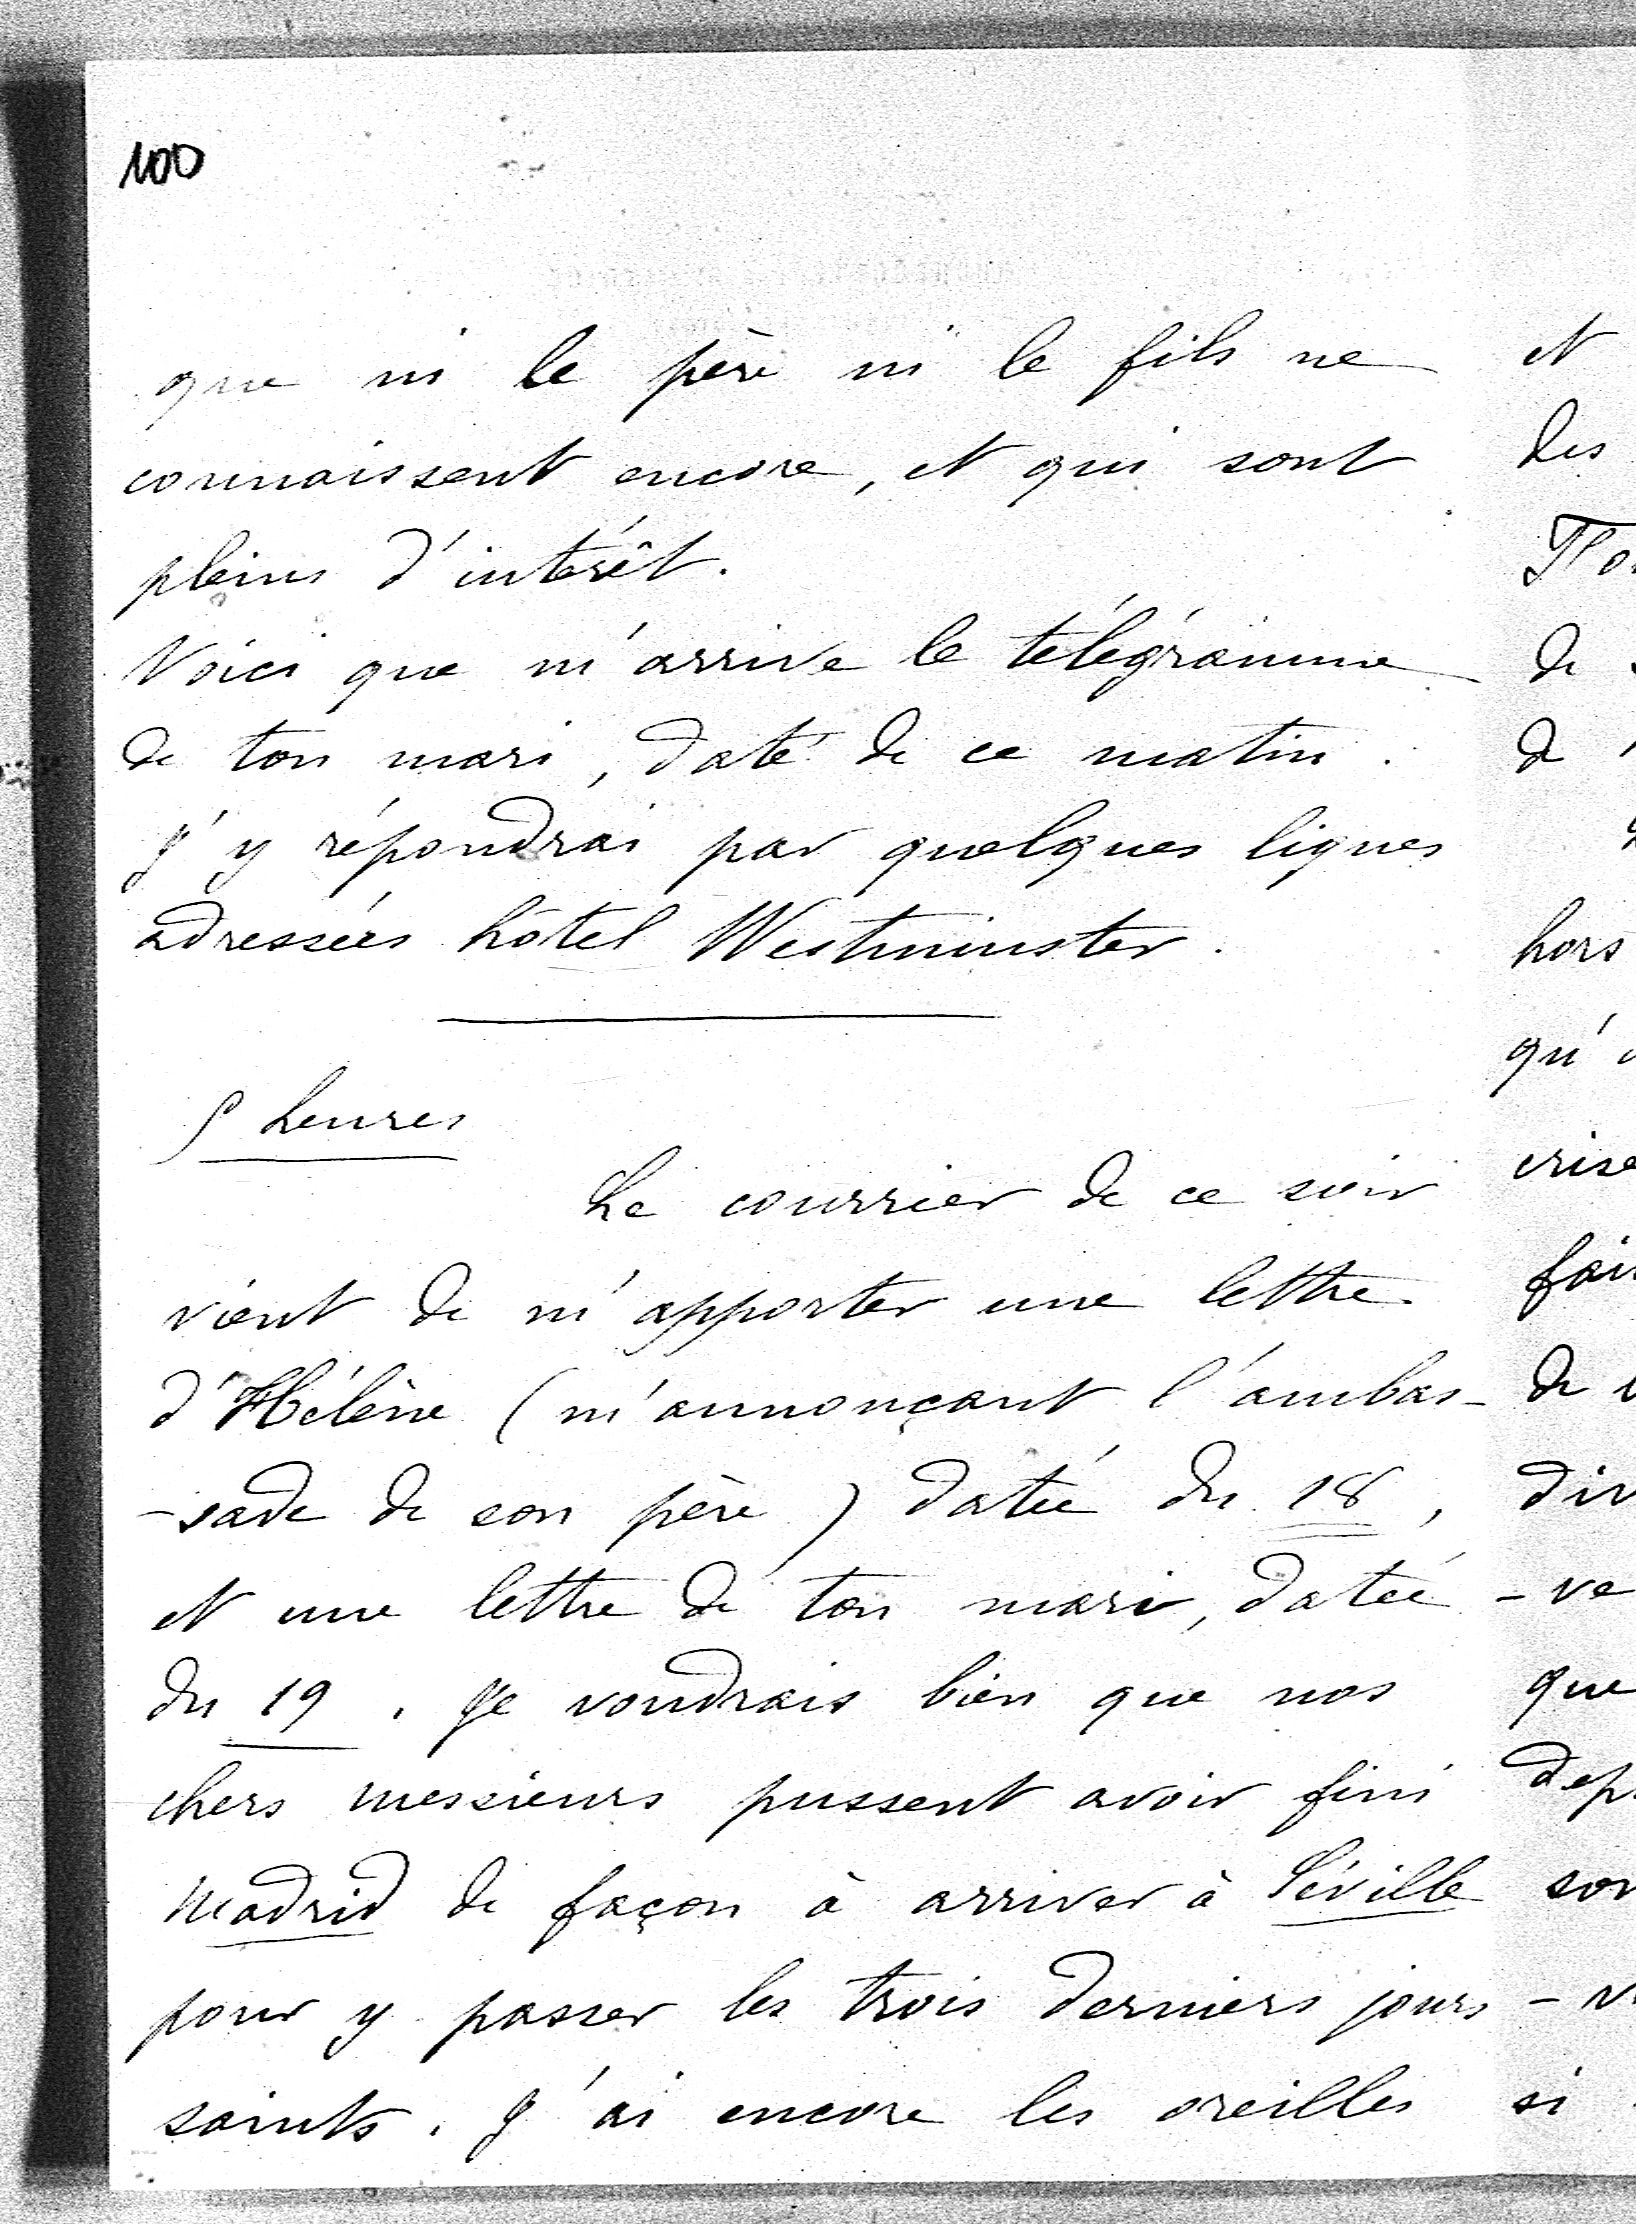 100
que ni le père ni le fils ne
connaissent encore, et qui sont
pleins d'intérêt.
Voici que m'arrive le télégramme
de ton mari, daté de ce matin.
J'y répondrai par quelques lignes
adressées hôtel Westminster.
5 heures
Le courrier de ce soir
vient de m'apporter une lettre
d'Hélène (m'annonçant l'ambas-
-sade de son père) datée du 18,
et une lettre de ton mari, datée
du 19. Je voudrais bien que nos
chers messieurs pussent avoir fini
Madrid de façon à arriver à Séville
pour y passer les trois derniers jours
saints. J'ai encore les oreilles
et
des
de
de
hors
que
si